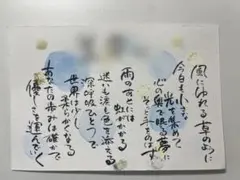 風にゆれる草のように
今日も小さな
光を集めて
心の奥で眠る夢に
そっと
雨のあとには
虹がかかる
迷いも涙も色を添える
深呼吸ひとつで
世界は少し
柔らかくなる
あなたの歩みは確かで
優しさを運んでいく